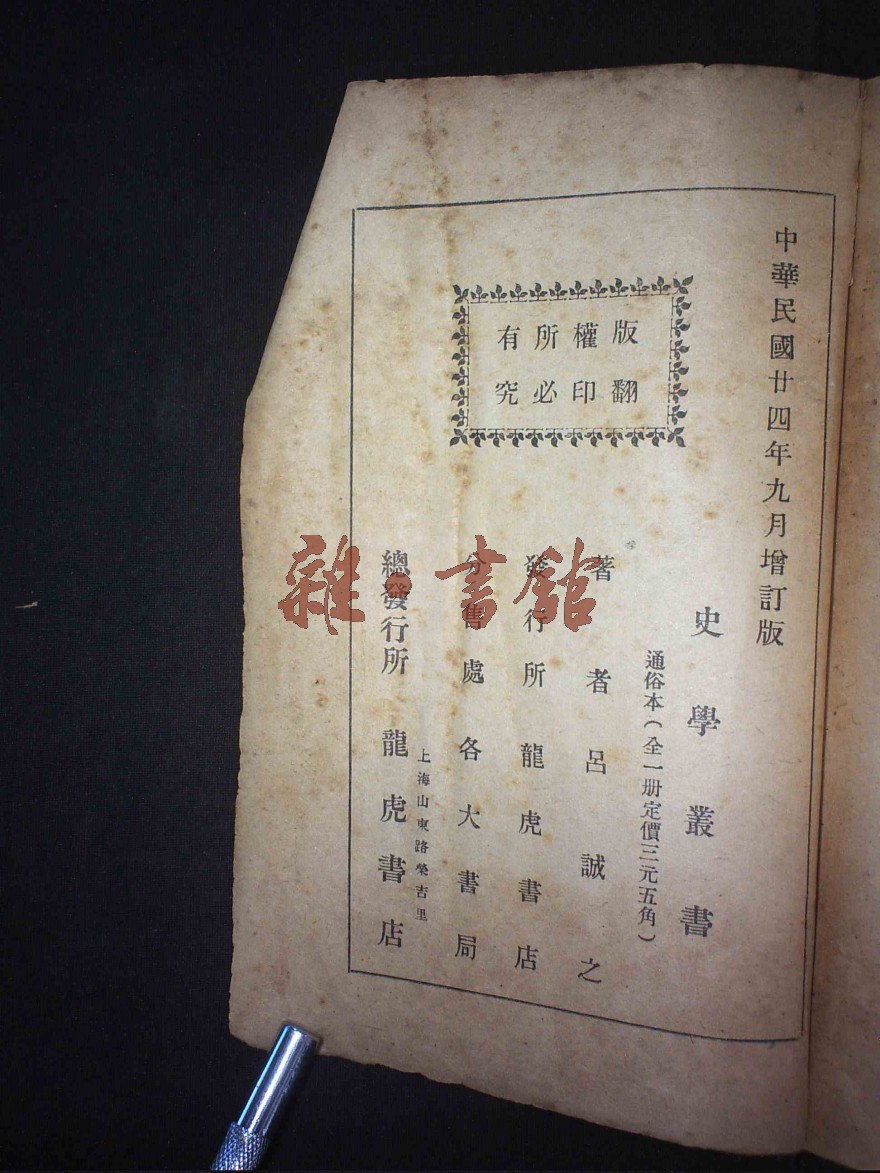 中華民國廿四年九月增訂版
版權所有
翻印必究
史學叢書
通俗本(全一册定價三元五角)
著者呂誠之
發行所龍虎書店
分售處各大書局
上海山東路榮吉里
總發行所 龍虎書店
雜·書館